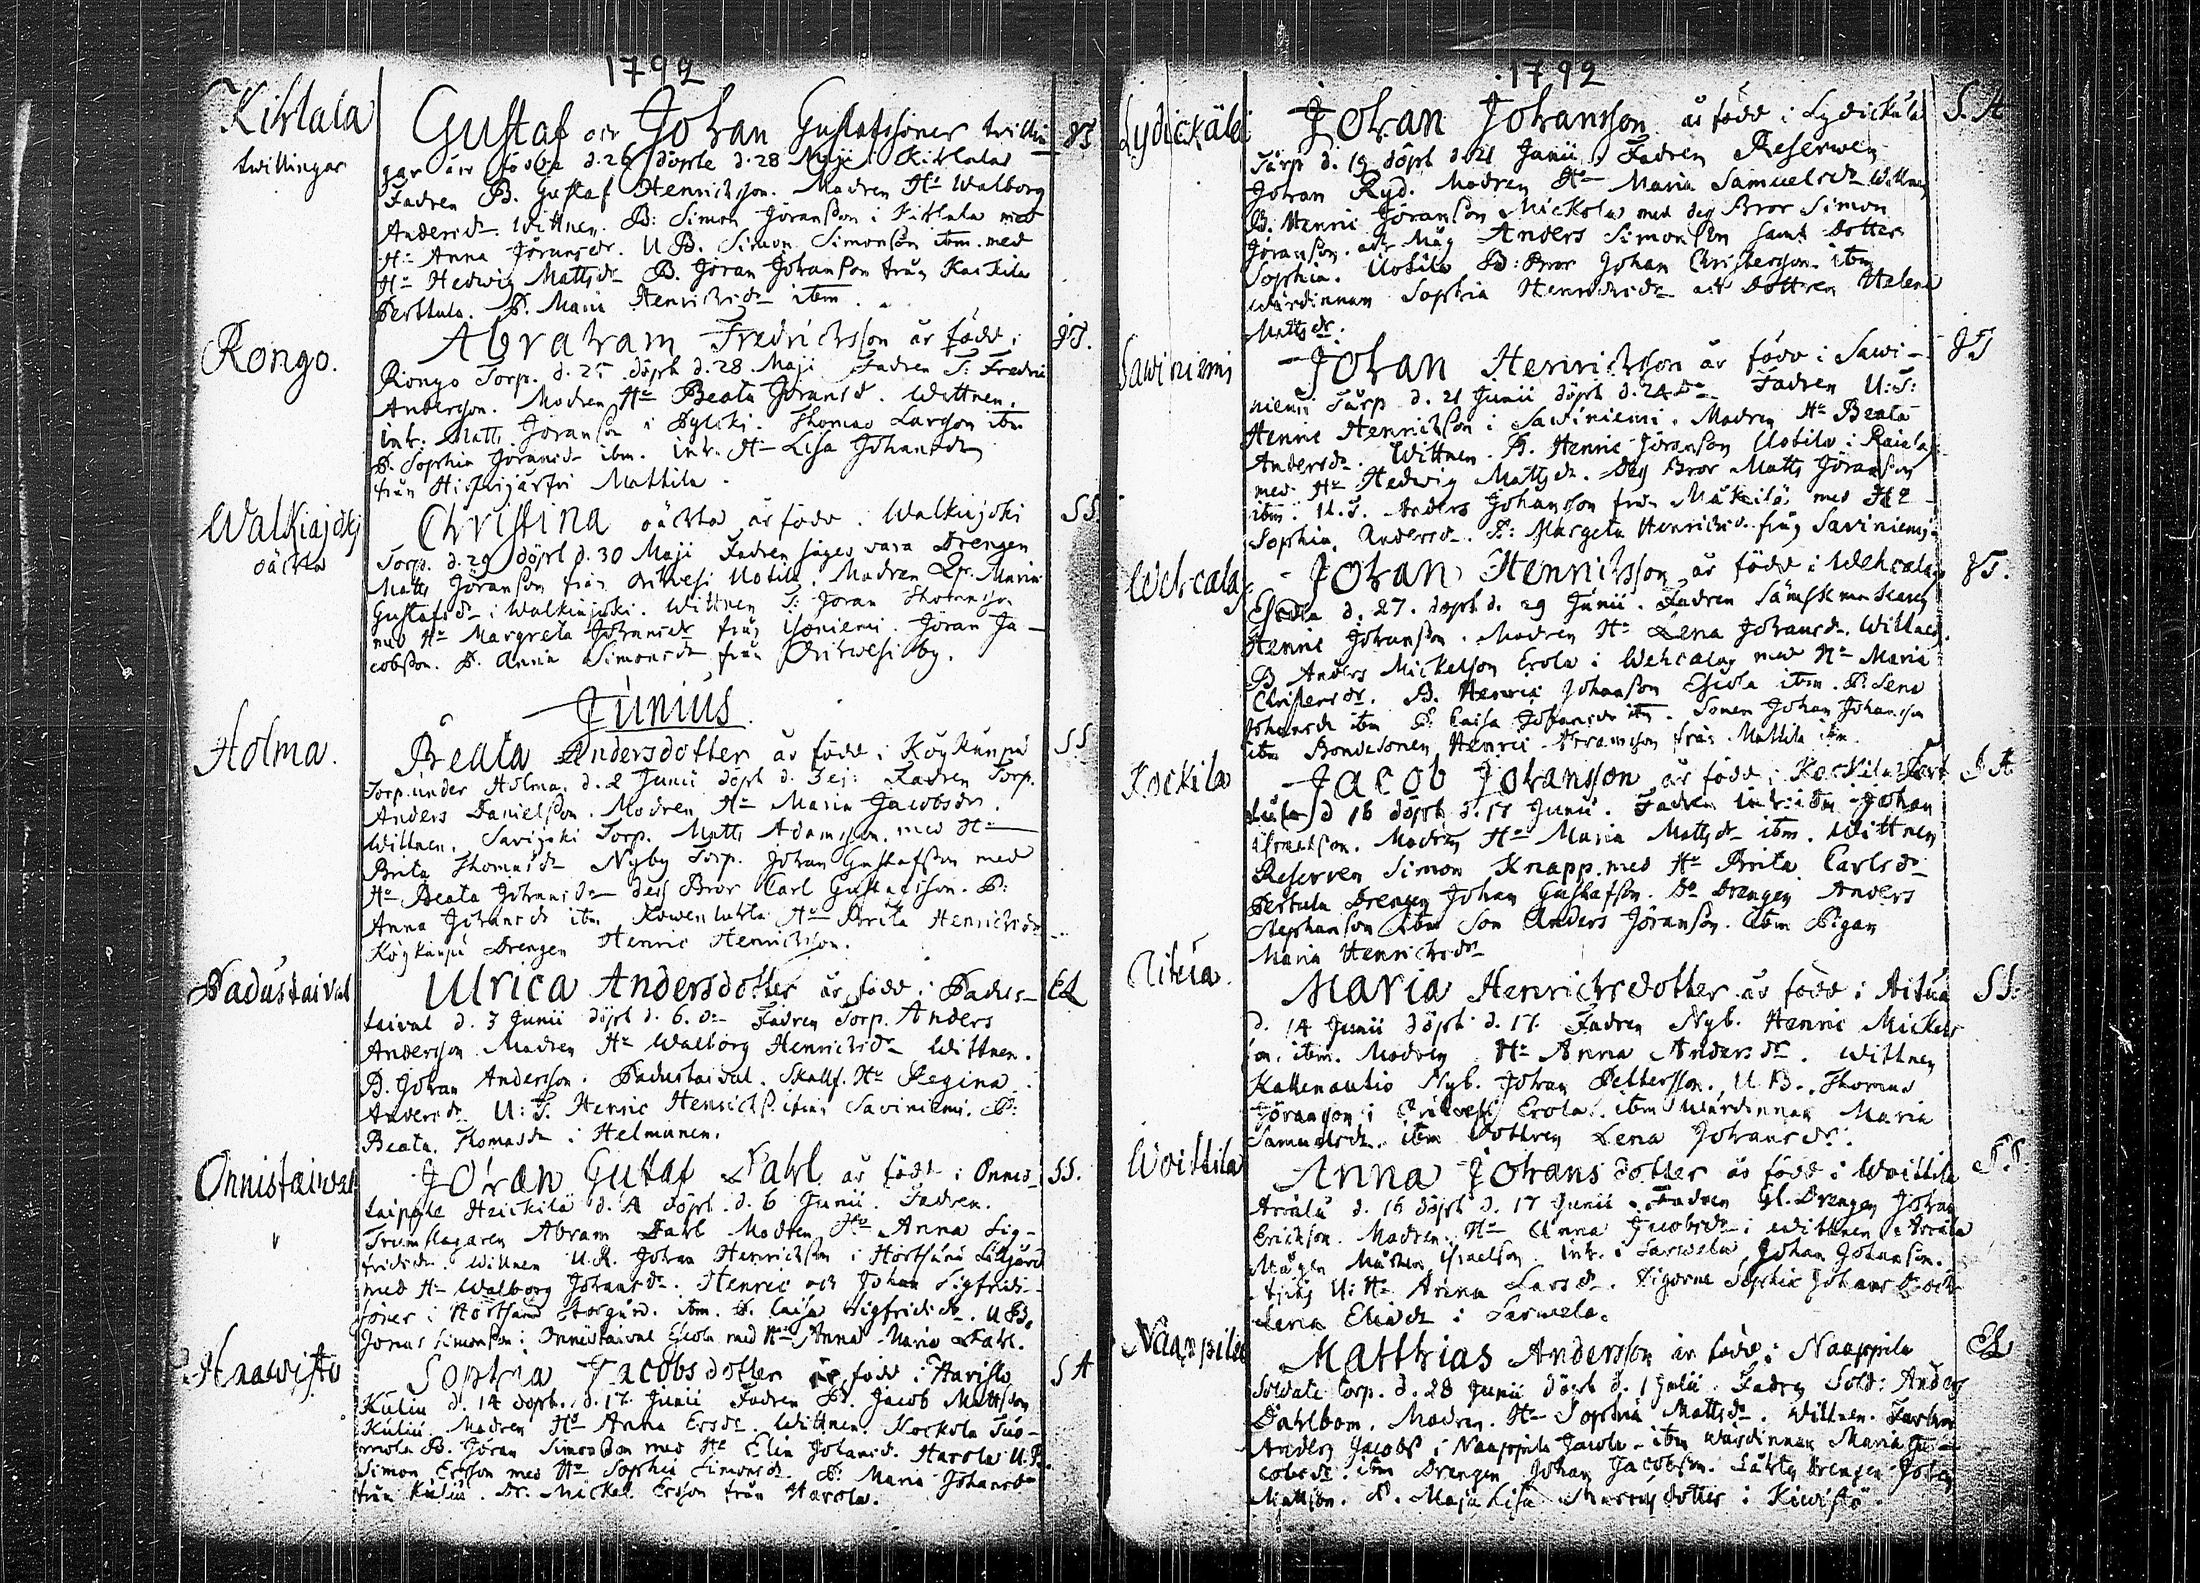 1792
Kihlala
twillingar
Gustaf och Johan Gustafssöner twillin
gar äro födde d. 26 döpte d. 28 Maji i Kihlala
Fadren B. Gustaf Henricsson. Modren Hu Walborg
Andersdr. Wittnen. B: Simon Jöransson i Kihlala med
Hu Anna Jöransdr. U B. Simon Simonsson ibm. med
Hu Hedwig Mattsdr B. Jöran Johansson från Kaikila
Perttula. P. Maria Henrichsdr ibm.
Rongo.
Abraham Fredrichsson är född i
JT.
Rongo Torp. d. 25 döpt d. 28 Maji Fadren T: Fredric
Andersson. Modren Hu Beata Jöransd. Wittnen.
inh: Matts Jöransson i Thomas Larsson ibm
P. Sophia Jöransdr ibm. inh. Hu Lisa Johansdr
från Mattila.
Walkiajoki
oäckta
Christina oäckta är född i Walkiajoki
SS.
Torp. d. 29 döpt d. 30 Maji Fadren säges vara Drengen
Matts Jöransson från Orihwesi Uotila. Modren Maria
Gustafsdr i Walkiajoki. Wittnen T: Jöran
med Hu Margreta Johansdr från Yöniemi. Jöran Ja-
cobsson. P. Anna Simonsdr från Orihwesi by.
Junius
Holma.
Beata Andersdotter är född i Köykänpä
SS
Torp under Holma. d. 2 Junii döpt d. 3 ej: Fadren Torp.
Anders Danielsson. Modren Hu Maria Jacobsdr.
Wittnen. Savijoki Torp. Matts Adamsson. med Hu
Brita Thomasdr Nyby Torp. Johan Gustafsson med
Hu Beata Johansdr dess Bror Carl Gustafsson. P:
Anna Johansdr ibm Hu Brita Henrichsdr
Köykänpä Drengen Henric Henrichsson.
Padustaival
Ulrica Andersdotter är född i Padus-
EL
taival d. 3 Junii döpt d. 6. dr Fadren Torp. Anders
Andersson Modren Hu Walborg Henrichsdr Wittnen.
B. Johan Andersson. Padustaival. Skallf. Hu Regina
Andersdr U: T. Henric Henrichss. ifrån Saviniemi. P:
Beata Thomasdr i Helmunen.
Onnistaiwal
Johan Gustaf Dahl är född i Onnis-
SS.
taipale Heickilä d. 4 döpt d. 6 Junii. Fadren.
Trumslagaren Abram Dahl Modren Hu Anna Sig-
fridsdr. Wittnen U.B. Johan Henrichsson i Hörtsänä Lillgård
med Hu Walborg Johansdr. Henric och Johan Sigfrids-
söner i Hörtsänä Storgård. ibm. P. Caisa Sigfridsdr. U B.
Jonas Simonsson i Onnistaival Eskola med Hu Anna Maria Dahl.
Haawisto
Sophia Jacobsdotter är född i Havisto
SA
Kuliu d. 14 döpt. d. 17. Junii Fadren B. Jacob Mattsson
Kuliu. Modren Hu Anna Ersdr. Wittnen. Kockola Tuo-
mola B. Jöran Simonsson med Hu Elin Johansd. Harola U.B.
Simon Ersson med Hu Sophia Simonsdr P: Maria Johansdr
från Kuliu. Dr. Mickel Ersson från Harola.
1792
Lydickälä
Johan Johansson är född i Lydickälä
S. A
Tårp d. 19 döpt d. 21 Junii. Fadren Reserwen
Johan Ryd. Modren Hu Maria Samuelsdr Wittnen
B. Henric Jöransson Mickola med dess Bror Simon
Jöransson. och Måg Anders Simonsson samt Dotter
Sophia. Uotila B: Bror Johan Christersson. ibm
Wärdinnan Sophia Henrichsdr och Dottren Helena
Mattsdr.
Sawiniemi
Johan Henrichsson är född i Sawi-
JT
niemi Tårp d. 21 Junii döpt d. 24 dr Fadren U: T:
Henric Henrichsson i Saviniemi. Modren Hu Beata
Andersdr. Wittnen. B. Henric Jöransson Uotila i Raiala
med Hu Hedwig Mattsdr. Dess Bror Matts Jöransson
ibm. U. T. Anders Johansson från med Hu
Sophia Andersdr. P: Margeta Henrichsdr från Saviniemi
Wehcala
Johan Henrichsson är född i Wehcala
JT.
Eskola d. 27. döpt d. 29 Junii. Fadren
Henric Johansson. Modren Hu Lena Johansdr. Wittnen.
B Anders Mickelsson Erola i Wehcala med Hu Maria
Christersdr. B. Henric Johansson Eskola ibm. P: Lena
Johansdr ibm P: Caisa Johansdr ibm. Sonen Johan Johansson
ibm Bondesonen Henric Abramsson från Mattila ibm.
Kockila
Jacob Johansson är född i Kockila
JA
d 16 döpt d. 17 Junii. Fadren inh: ibm Johan
Israelsson. Modren Hu Maria Mattsdr ibm. Wittnen
Reserven Simon Knapp. med Hu Brita Carlsdr
Pertula Drengen Johan Gustafsson. Do Drengen Anders
Stephansson ibm Son Anders Jöransson. ibm Pigan
Maria Henrichsdr
Aitua.
Maria Henrichsdotter är född i Aitua
SS:
d. 14 Junii döpt d. 17. Fadren Nyb. Henric Mickels
son. ibm. Modren Hu Anna Andersdr. Wittnen
Kallenautio Nyb. Johan Pettersson. U. B. Thomas
Jöransson i Orihvesi Erola. ibm Wärdinnan Maria
Samuelsdr. ibm Dottren Lena Johansdr.
Woittila
Anna Johansdotter är född i Woittila
Arrälä d. 16 döpt d. 17 Junii. Fadren Gl. Drengen Johan
Erickson. Modren. Hu Anna Jacobsdr. Wittnen
Mågen Mårten Israelson. Inh. i Sarwela Johan Johansson.
U: Hu Anna Larsdr. Pigorne Sophia Johansdr och
Lena Eliædr i Sarwela.
Naappila
Matthias Andersson är född i Naappila
EL
Soldate Torp. d. 28 Junii döpt d. 1 Julii. Fadren Sold: Anders
Dahlbom. Modren. Hu Sophia Mattsdr. Wittnen. Farbror
Anders Jacobss i Naappila Jacola. ibm Wärdinnan Maria Ja-
cobsdr. ibm Drengen Johan Jacobsson. Drengen Johan
Mattsson. P. Maja Lisa Marcusdotter i Kiwistö.